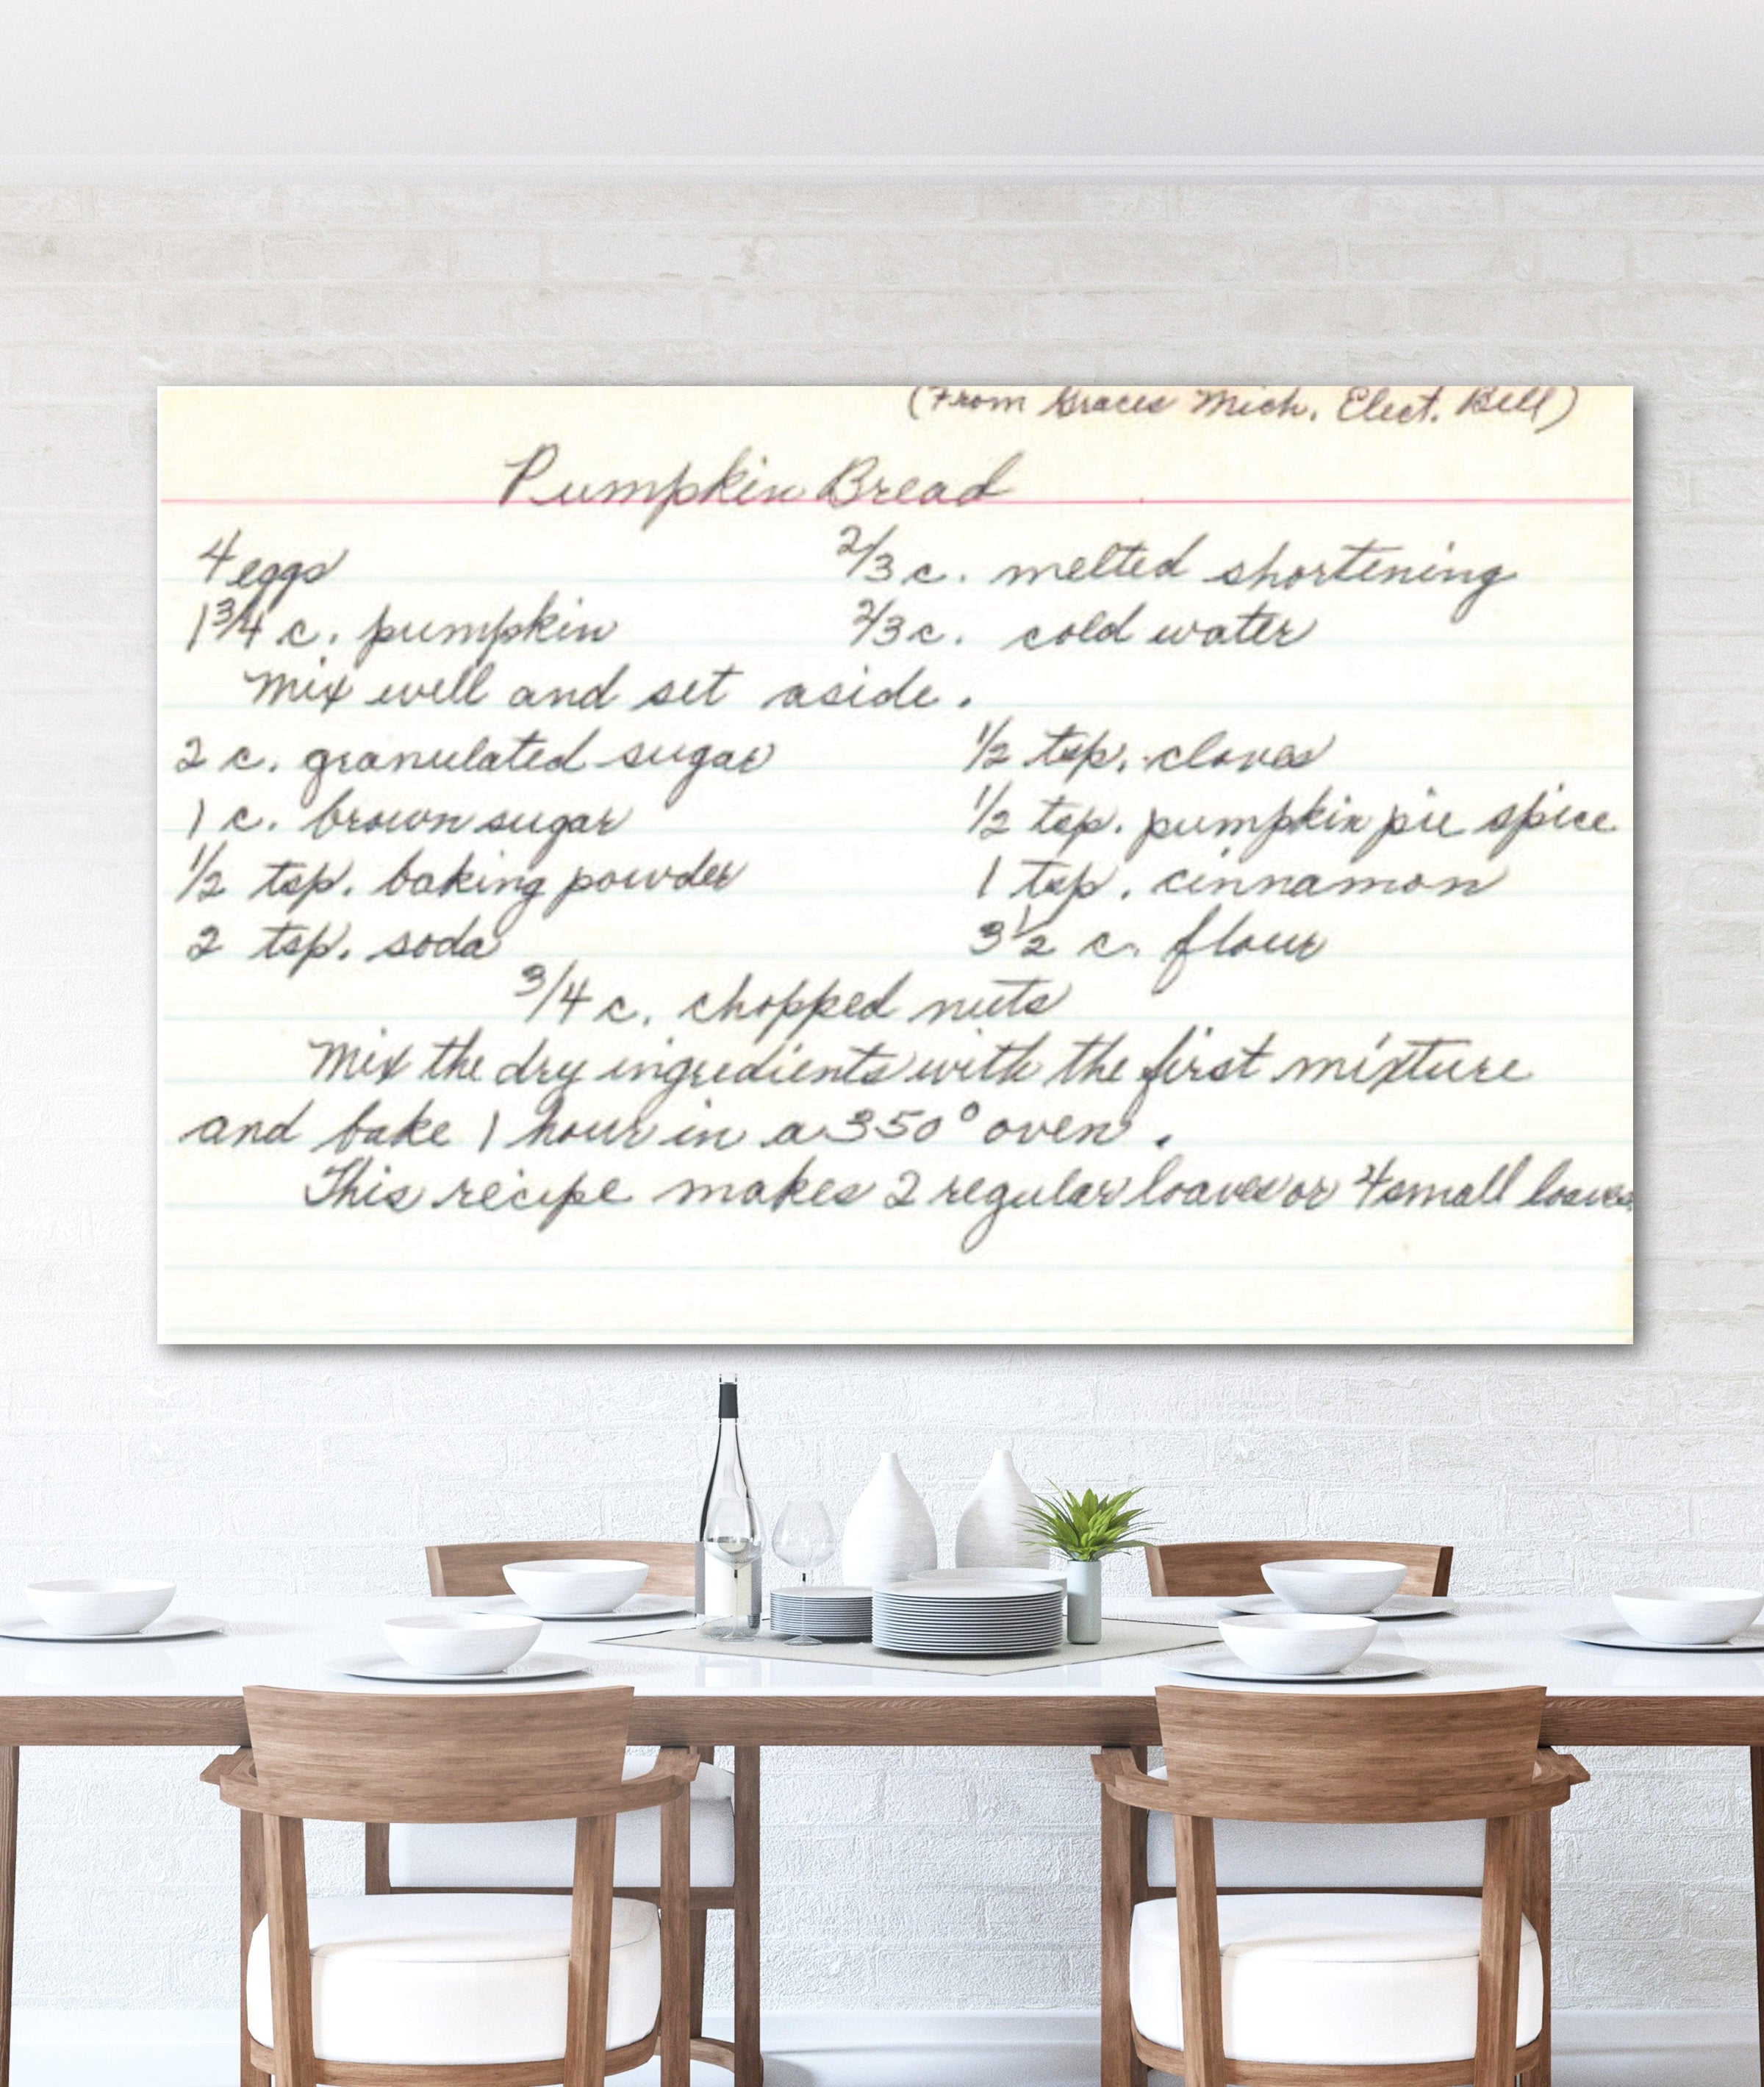 (From Graces Mich. Elect. Bell)
Pumpkin Bread
4 eggs 2/3 c. melted shortening
1 3/4 c. pumpkin 2/3 c. cold water
Mix well and set aside.
2 c. granulated sugar 1/2 tsp. cloves
1 c. brown sugar 1/2 tsp. pumpkin pie spice
1/2 tsp. baking powder 1 tsp. cinnamon
2 tsp. soda 3 1/2 c. flour
3/4 c. chopped nuts
Mix the dry ingredients with the first mixture
and bake 1 hour in a 350° oven.
This recipe makes 2 regular loaves or 4 small loaves.